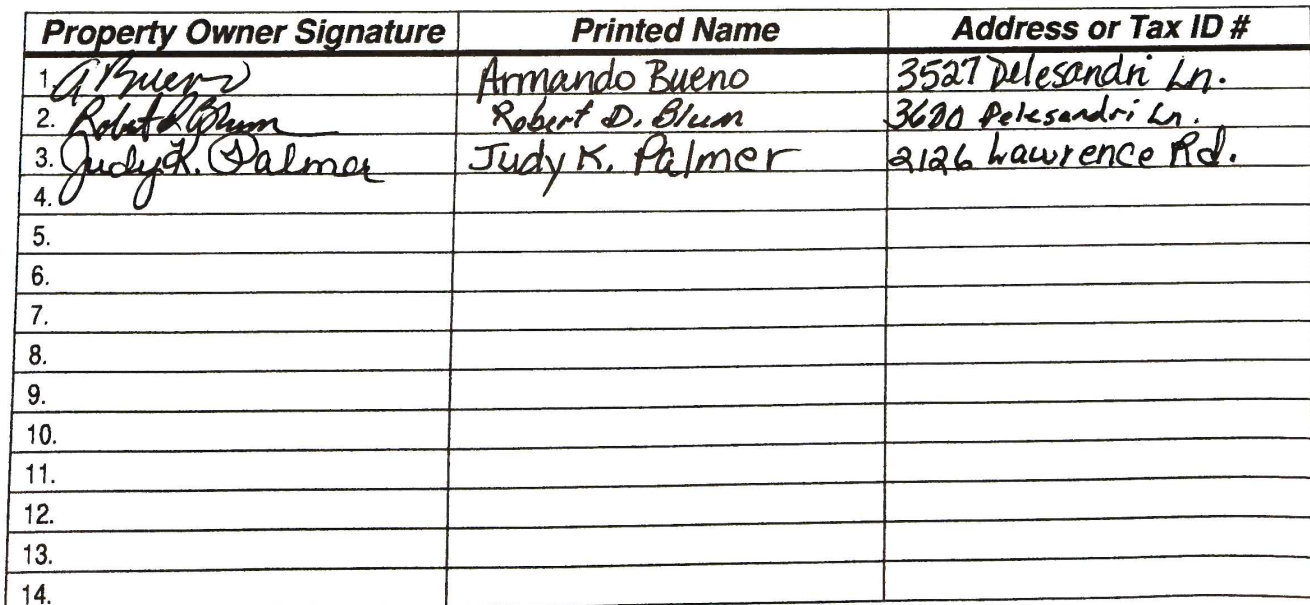 Property Owner Signature Printed Name Address or Tax ID #
1. A Bueno Armando Bueno 3527 Delesandri Ln.
2. Robert D Blum Robert D. Blum 3600 Delesandri Ln.
3. Judy K. Palmer Judy K. Palmer 2126 Lawrence Rd.
4.
5.
6.
7.
8.
9.
10.
11.
12.
13.
14.